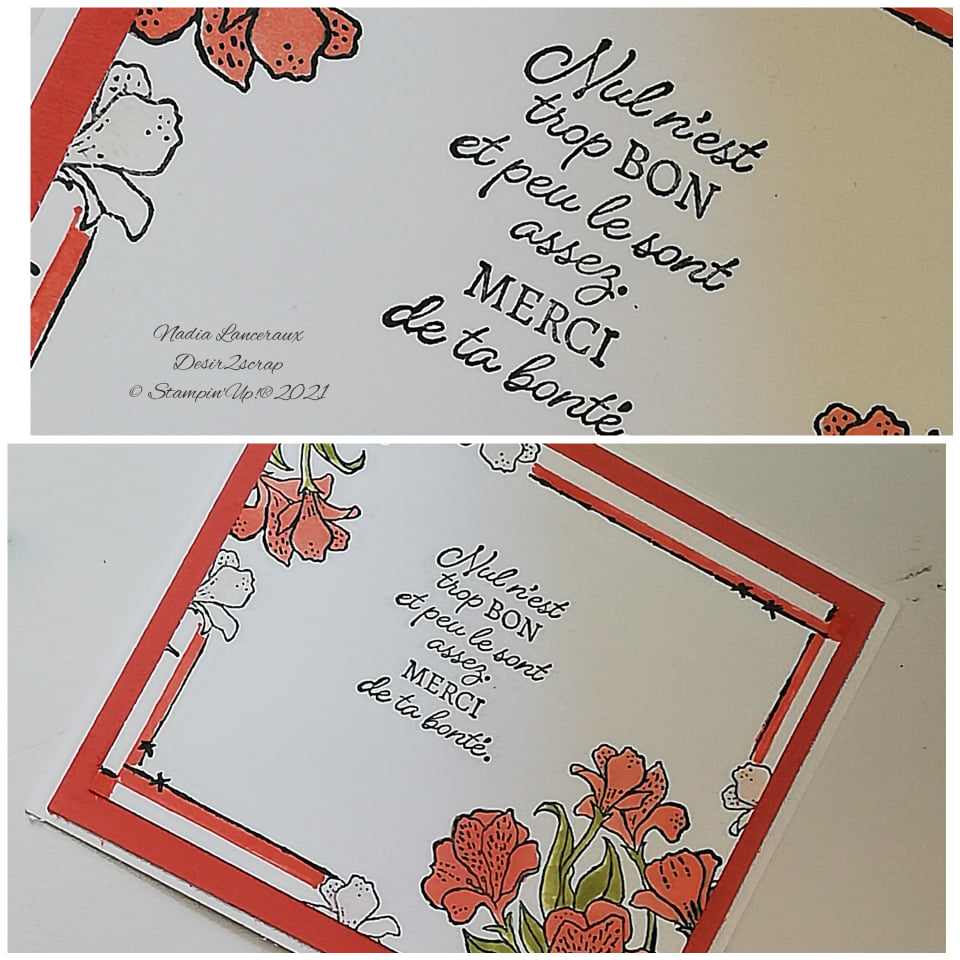 Nul n'est
trop BON
et peu le sont
assez.
MERCI
de ta bonté.
Nadia Lanceraux
Desir2scrap
© Stampin'Up!® 2021
Nul n'est
trop BON
et peu le sont
assez.
MERCI
de ta bonté.